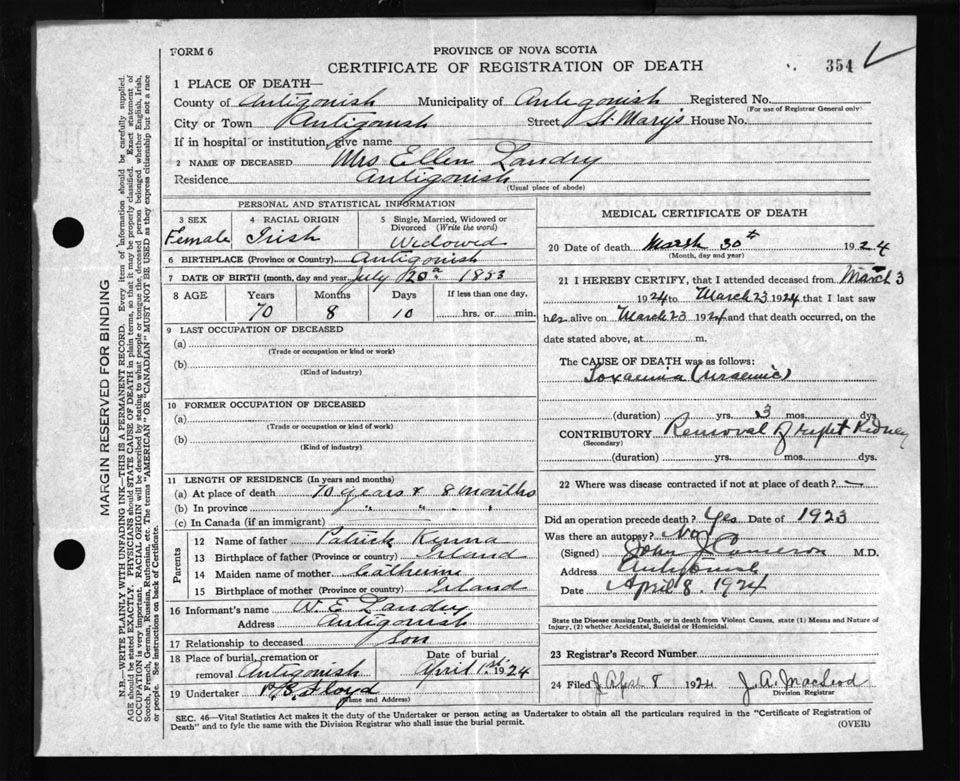 FORM 6
PROVINCE OF NOVA SCOTIA
CERTIFICATE OF REGISTRATION OF DEATH
354
1 PLACE OF DEATH—
County of Antigonish Municipality of Antigonish Registered No.
(For use of Registrar General only)
City or Town Antigonish Street St. Mary's House No.
If in hospital or institution, give name
2 NAME OF DECEASED Mrs Ellen Landry
Residence Antigonish
(Usual place of abode)
PERSONAL AND STATISTICAL INFORMATION
3 SEX Female
4 RACIAL ORIGIN Irish
5 Single, Married, Widowed or Divorced (Write the word) Widowed
6 BIRTHPLACE (Province or Country) Antigonish
7 DATE OF BIRTH (month, day and year) July 20th 1853
8 AGE Years Months Days If less than one day,
70 8 10 hrs. or min.
9 LAST OCCUPATION OF DECEASED
(a)
(Trade or occupation or kind or work)
(b)
(Kind of industry)
10 FORMER OCCUPATION OF DECEASED
(a)
(Trade or occupation or kind of work)
(b)
(Kind of industry)
11 LENGTH OF RESIDENCE (In years and months)
(a) At place of death 70 years & 8 months
(b) In province " " " "
(c) In Canada (if an immigrant)
Parents
12 Name of father Patrick Kenna
13 Birthplace of father (Province or country) Irland
14 Maiden name of mother Catherine
15 Birthplace of mother (Province or country) Irland
16 Informant's name W. E. Landry
Address Antigonish
17 Relationship to deceased son
18 Place of burial, cremation or removal Antigonish
Date of burial April 1st 1924
19 Undertaker Floyd
(Name and Address)
MEDICAL CERTIFICATE OF DEATH
20 Date of death March 30th 1924
(Month, day and year)
21 I HEREBY CERTIFY, that I attended deceased from March 3
1924 to March 23 1924 that I last saw
her alive on March 23 1924 and that death occurred, on the
date stated above, at m.
The CAUSE OF DEATH was as follows:
Toxaemia (Uraemic)
(duration) yrs. 3 mos. dys
CONTRIBUTORY Removal of right Kidney
(Secondary)
(duration) yrs. mos. dys.
22 Where was disease contracted if not at place of death? —
Did an operation precede death? Yes Date of 1923
Was there an autopsy? No
(Signed) John J Cameron M.D.
Address Antigonish
Date April 8. 1924
State the Disease causing Death, or in death from Violent Causes, state (1) Means and Nature of
Injury, (2) whether Accidental, Suicidal or Homicidal.
23 Registrar's Record Number
24 Filed Apr 8 1924 J. A. MacLeod
Division Registrar
SEC. 46—Vital Statistics Act makes it the duty of the Undertaker or person acting as Undertaker to obtain all the particulars required in the "Certificate of Registration of
Death" and to fyle the same with the Division Registrar who shall issue the burial permit.
(OVER)
MARGIN RESERVED FOR BINDING
N.B.—WRITE PLAINLY WITH UNFADING INK—THIS IS A PERMANENT RECORD. Every item of information should be carefully supplied.
AGE should be stated EXACTLY. PHYSICIANS should STATE CAUSE OF DEATH in plain terms, so that it may be properly classified. Exact statement of
OCCUPATION is very important. RACIAL ORIGIN will be described by stating to what people or tongue the deceased person belonged whether English, Irish,
Scotch, French, German, Russian, Ruthenian, etc. The terms "AMERICAN" OR "CANADIAN" MUST NOT BE USED as they express citizenship but not a race
or people. See instructions on back of Certificate.